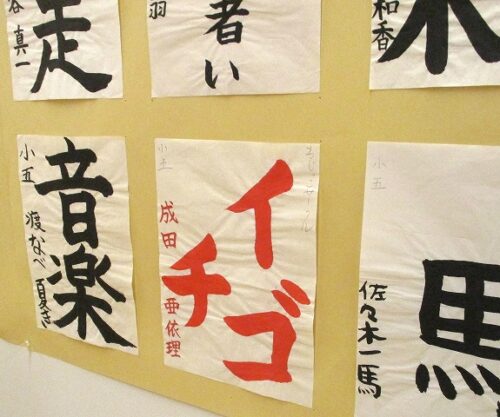 走
谷 真一
者い
羽
木
和香
音楽
小五
渡なべ 夏き
イチゴ
小五
成田 亜依理
馬
小五
佐々木一馬